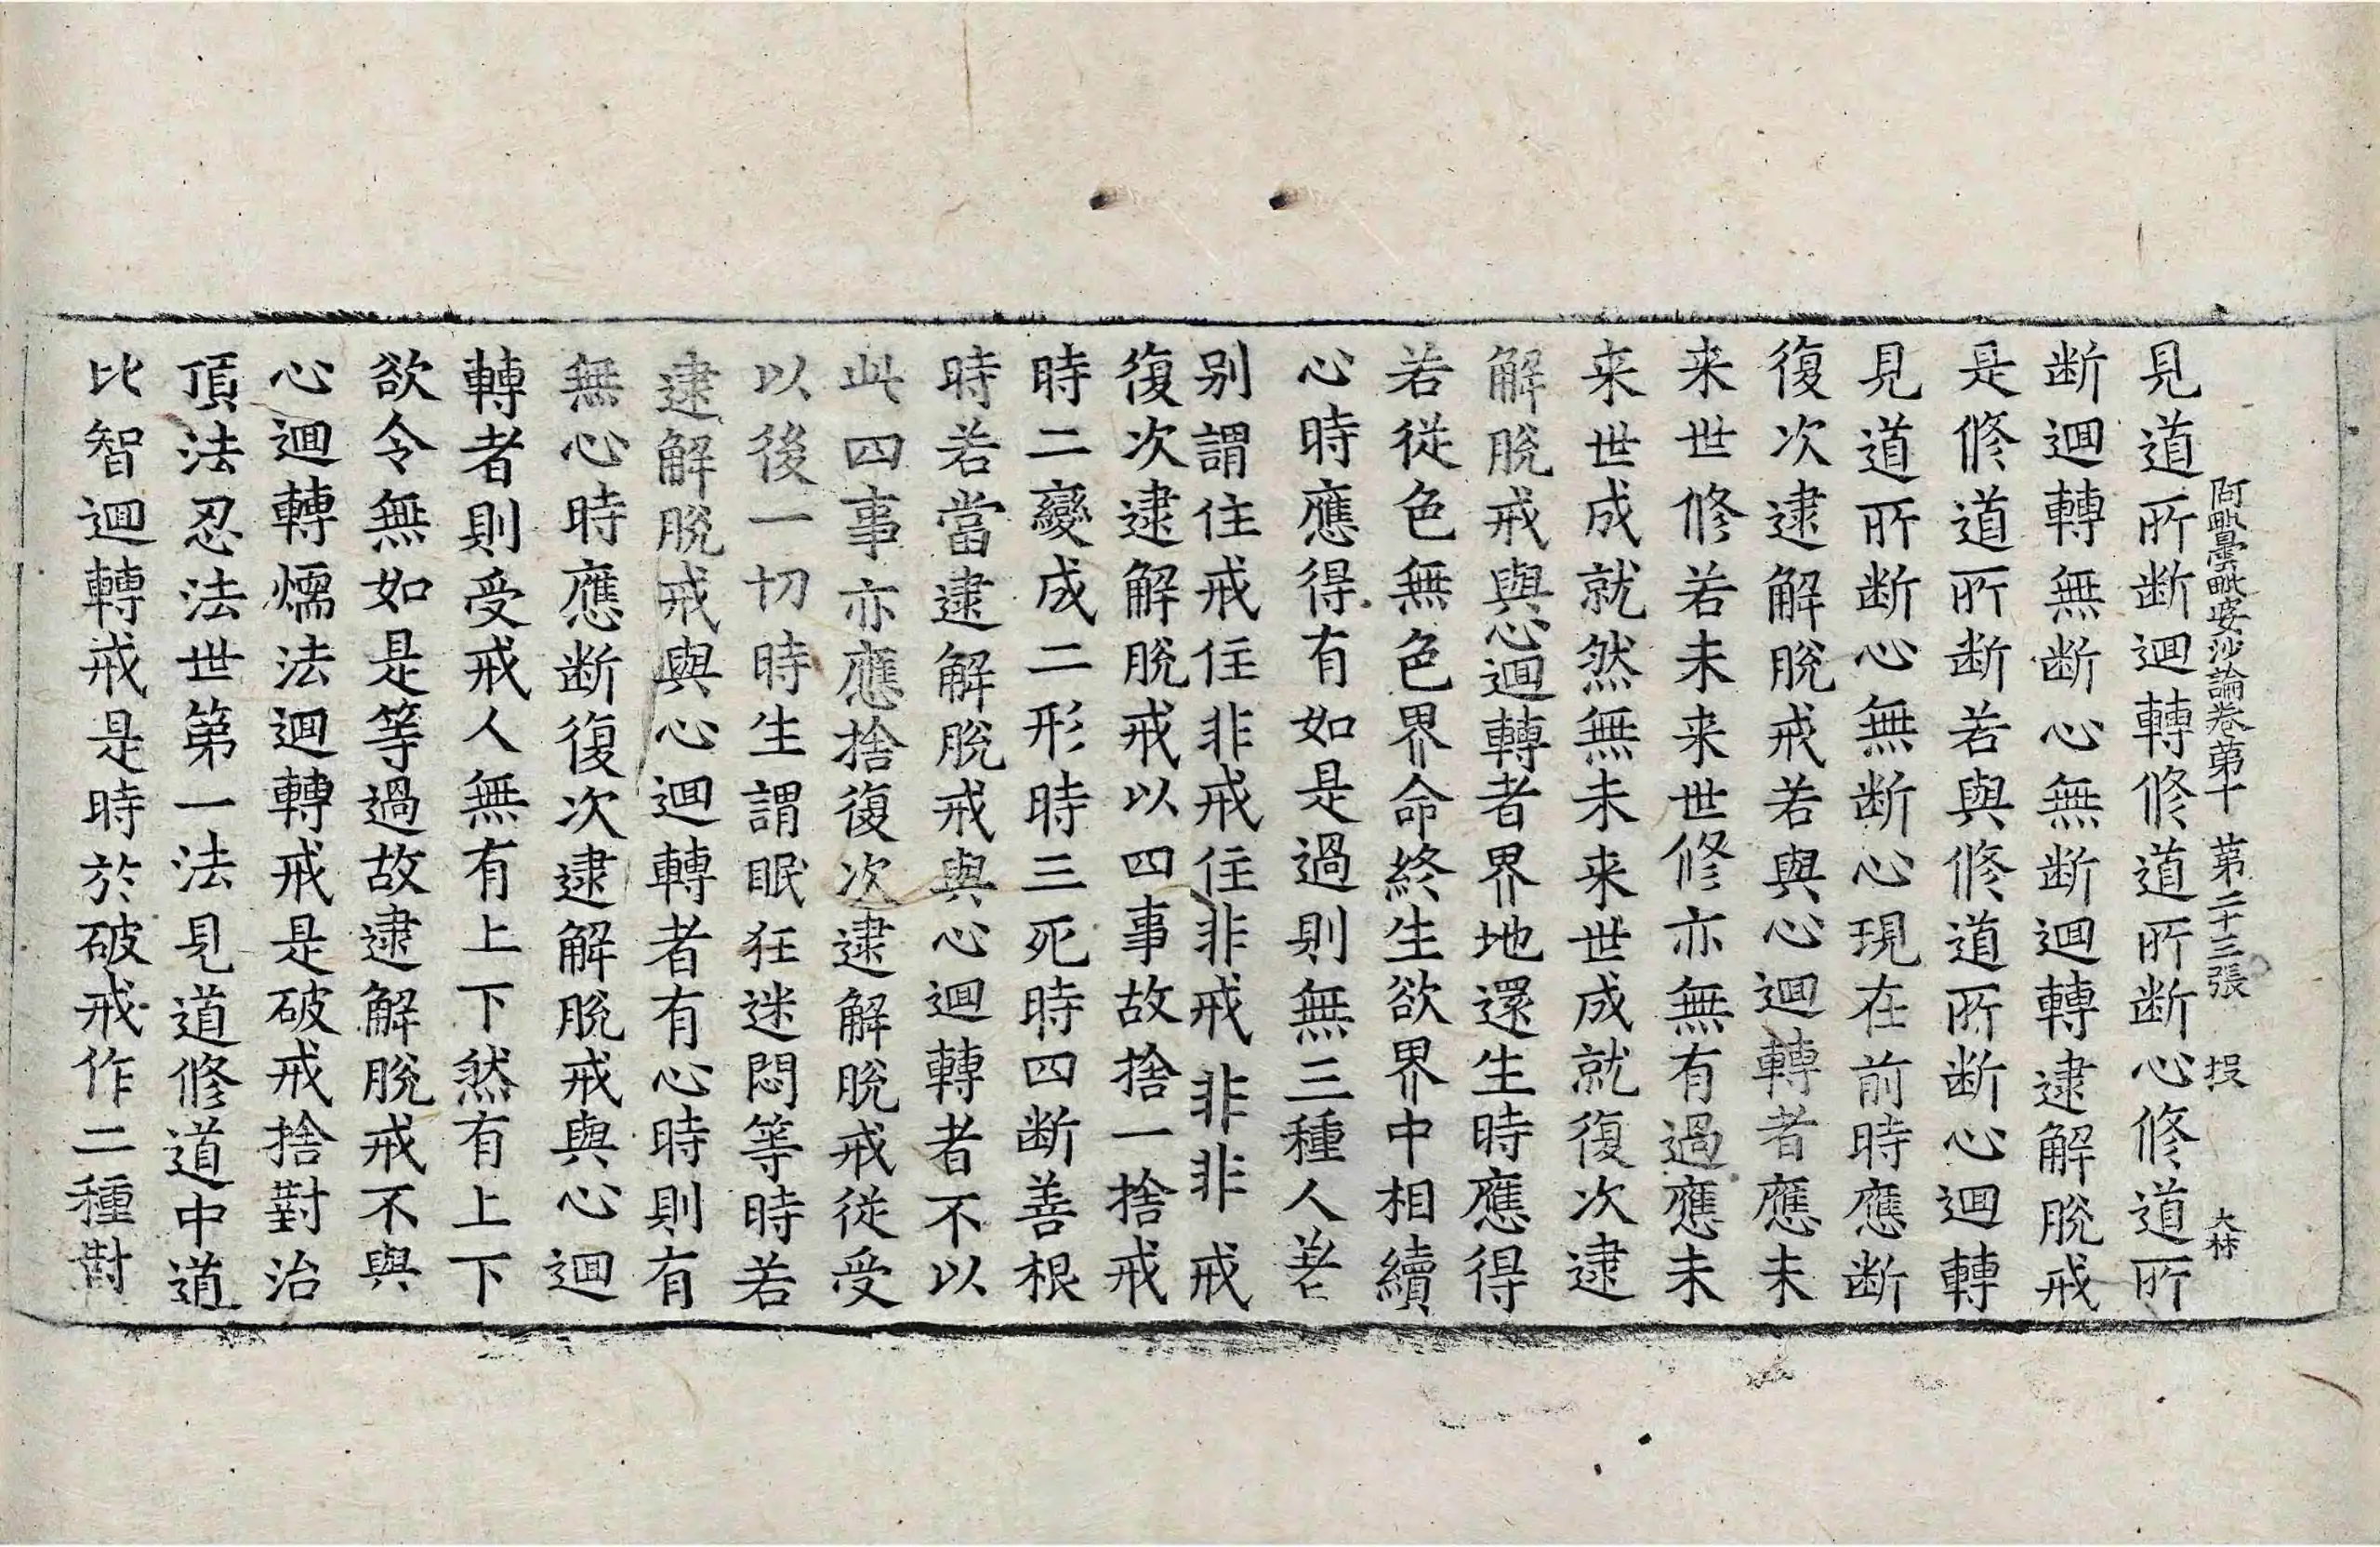 阿毗曇毗婆沙論卷第十　第二十三張　投　大林
見道所断迴轉修道所断心修道所
断迴轉無断心無断迴轉逮解脫戒
是修道所断若與修道所断心迴轉
見道所断心無断心現在前時應断
復次逮解脫戒若與心迴轉者應未
来世修若未来世修亦無有過應未
来世成就然無未来世成就復次逮
解脫戒與心迴轉者界地還生時應得
若從色無色界命終生欲界中相續
心時應得有如是過則無三種人差
別謂住戒住非戒住非戒非非戒
復次逮解脫戒以四事故捨一捨戒
時二變成二形時三死時四断善根
時若當逮解脫戒與心迴轉者不以
此四事亦應捨復次逮解脫戒從受
以後一切時生謂眠狂迷悶等時若
逮解脫戒與心迴轉者有心時則有
無心時應断復次逮解脫戒與心迴
轉者則受戒人無有上下然有上下
欲令無如是等過故逮解脫戒不與
心迴轉燸法迴轉戒是破戒捨對治
頂法忍法世第一法見道修道中道
比智迴轉戒是時於破戒作二種對